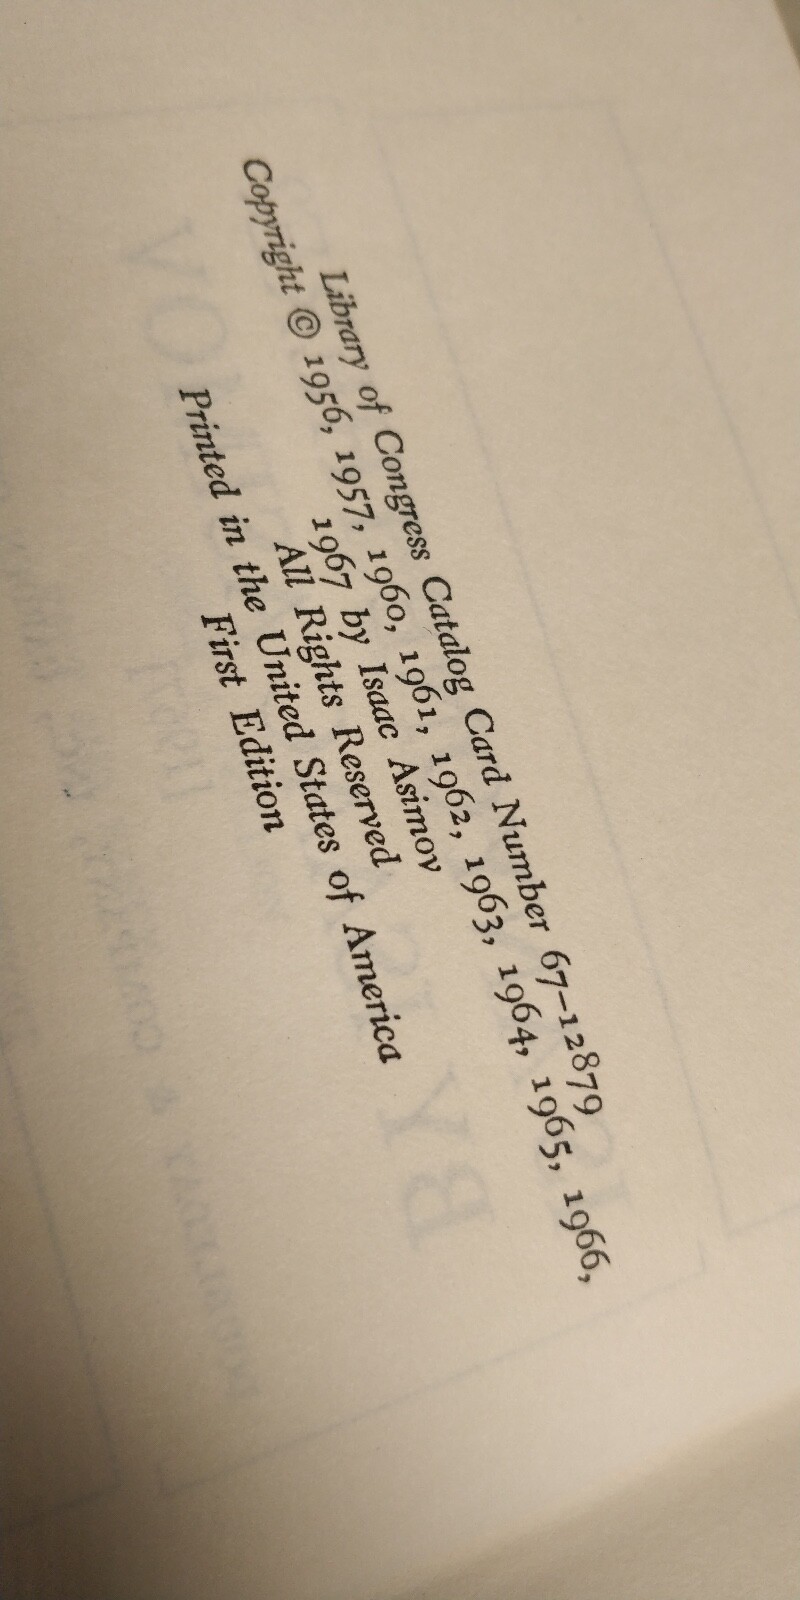 Library of Congress Catalog Card Number 67-12879
Copyright © 1956, 1957, 1960, 1961, 1962, 1963, 1964, 1965, 1966,
1967 by Isaac Asimov
All Rights Reserved
Printed in the United States of America
First Edition